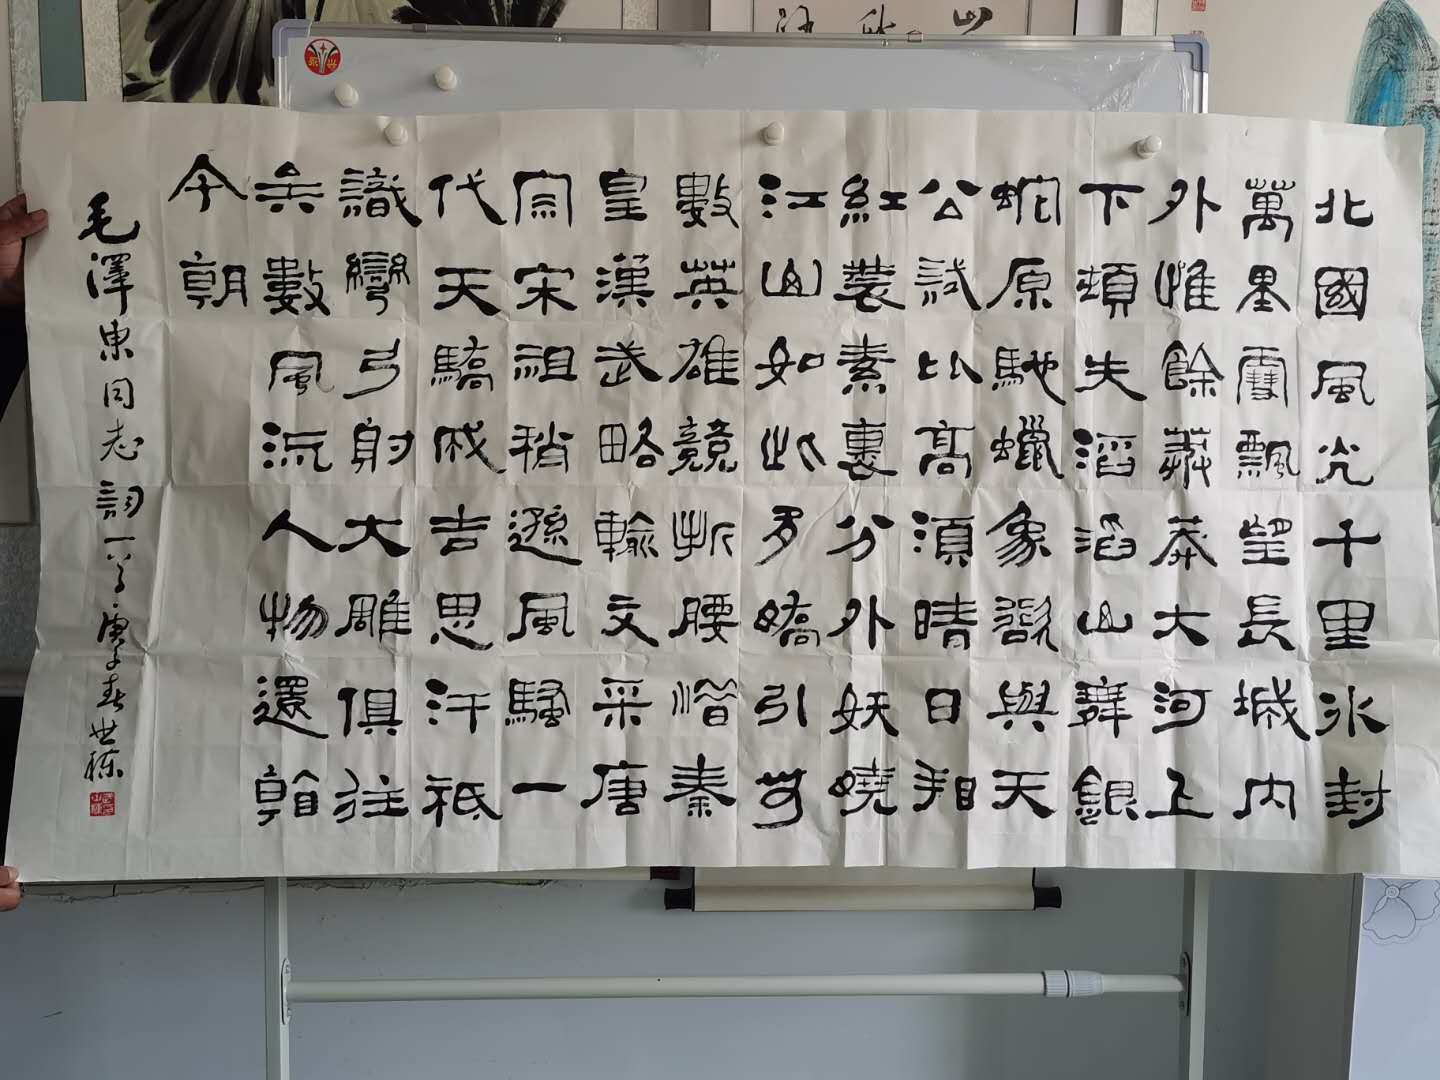 北國風光千里冰封
萬里雪飄望長城内
外惟餘莽莽大河上
下頓失滔滔山舞銀
蛇原馳蠟象欲與天
公試比高須晴日看
紅裝素裹分外妖嬈
江山如此多嬌引無
數英雄競折腰惜秦
皇漢武略輸文采唐
宗宋祖稍遜風騷一
代天驕成吉思汗祇
識彎弓射大雕俱往
矣數風流人物還看
今朝
毛澤東同志詞一首庚子春世棟